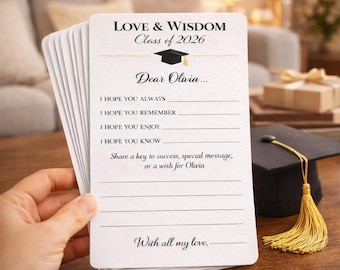 LOVE & WISDOM
Class of 2026
Dear Olivia...
I HOPE YOU ALWAYS
I HOPE YOU REMEMBER
I HOPE YOU ENJOY
I HOPE YOU KNOW
Share a key to success, special message,
or a wish for Olivia
With all my love,